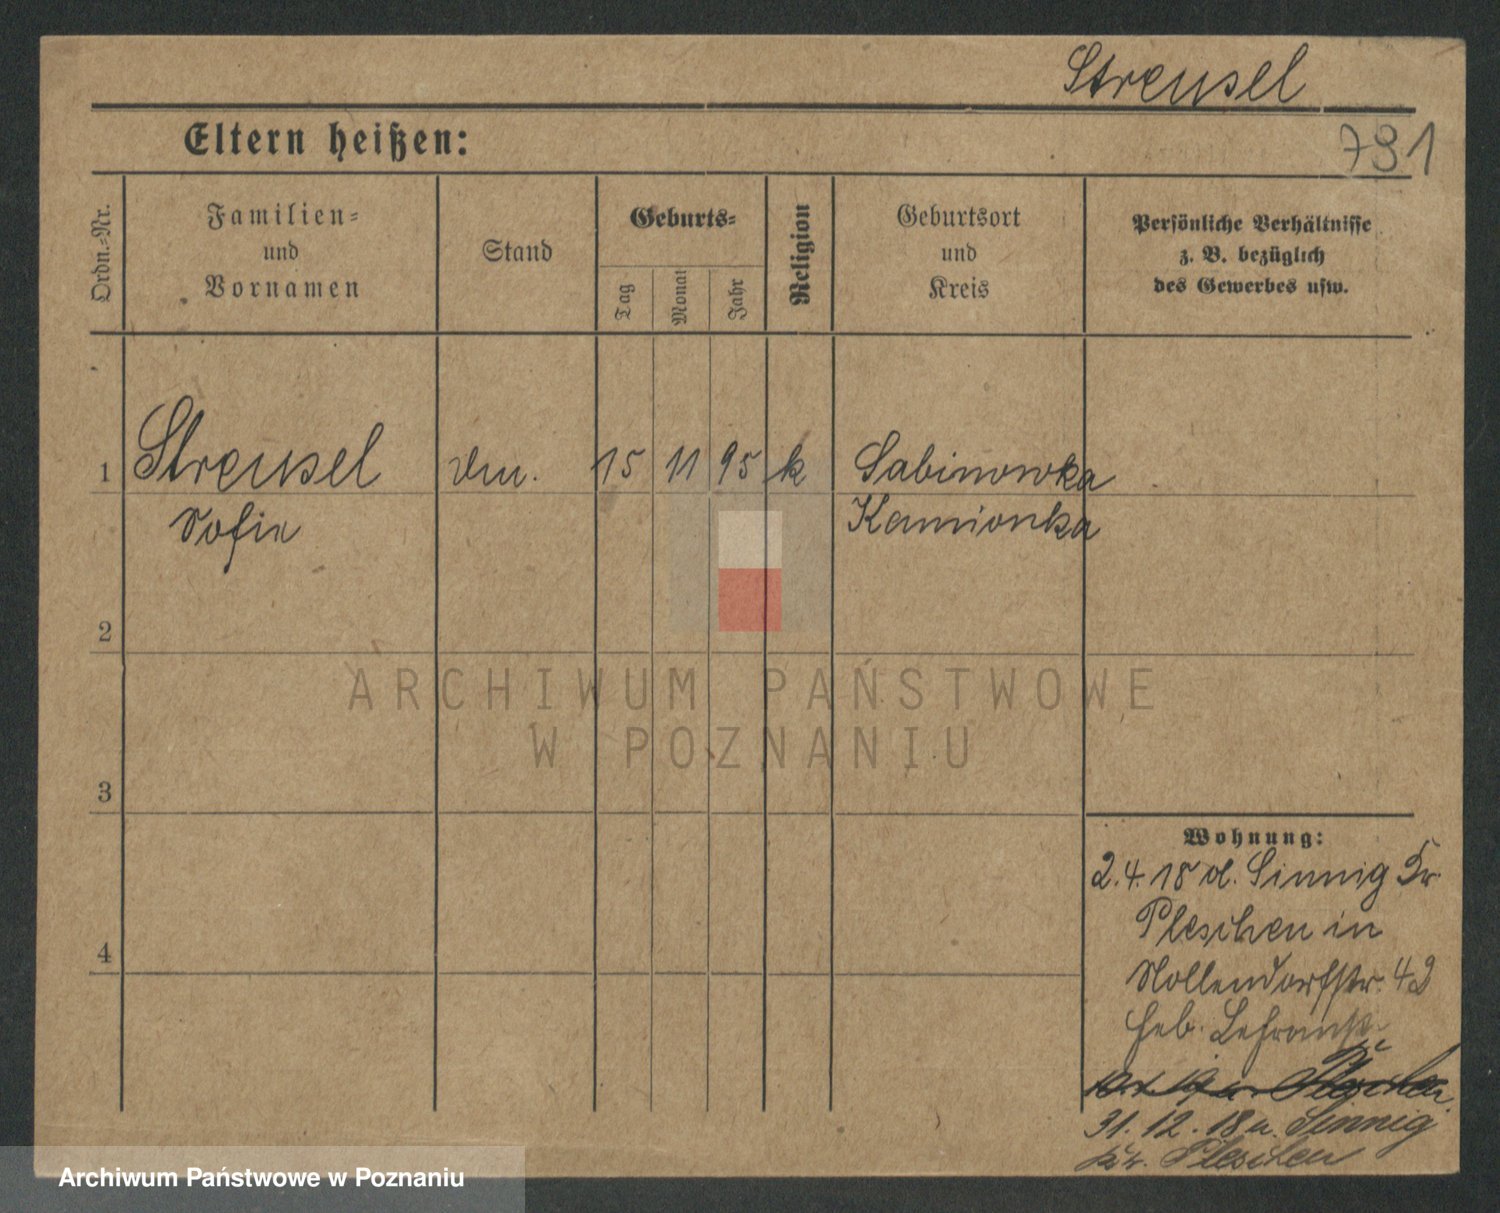 Streusel
Eltern heißen:
791
Ordn.=Nr.
Familien=
und
Vornamen
Stand
Geburts=
Tag
Monat
Jahr
Religion
Geburtsort
und
Kreis
Persönliche Verhältnisse
z. B. bezüglich
des Gewerbes usw.
1 Streusel 15 11 95 k Sabinowka
Sofie Kamionka
2
3
4
ARCHIWUM PAŃSTWOWE
W POZNANIU
Wohnung:
2.4.18 v. Sinnig Kr.
Pleschen in
Nollendorfstr. 42
Pleschen
31.12.18 n. Sinnig
Kr. Pleschen
Archiwum Państwowe w Poznaniu